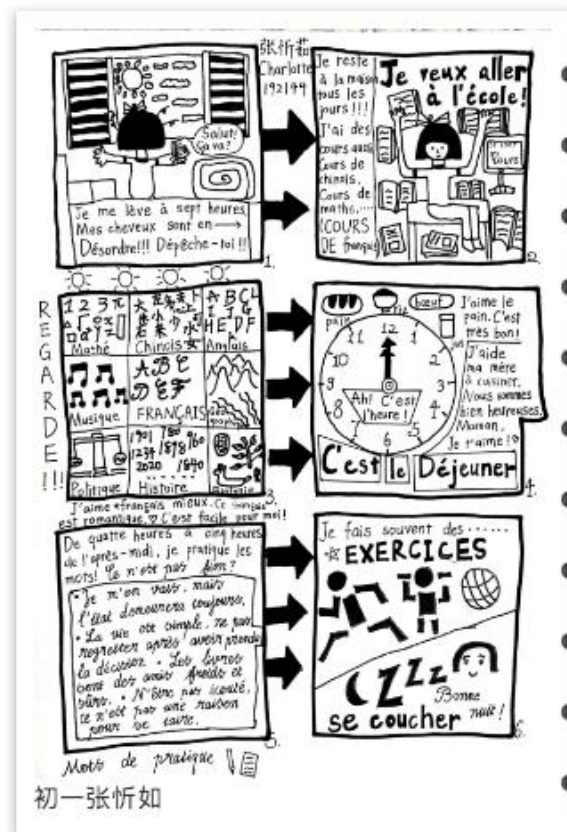 张忻茹
Charlotte
192199
Salut!
Ça va?
Je me lève à sept heures.
Mes cheveux sont en
Désordre!!! Dépêche-toi!!
1.
Je reste
à la maison
tous les
jours!!!
J'ai des
cours aussi
Cours de
chinois,
Cours de
maths,...
!COURS
DE français
Je veux aller
à l'école!
2.
REGARDE!!!
1 2 3 π
Mathé
Chinois
A B C
Anglais
Musique
A B C
D E F
FRANÇAIS
Politique
1901 180
1234 1898 960
2020 1840
Histoire
3.
J'aime français mieux. Ce français
est romantique. C'est facile pour moi!
pain
riz
bœuf
12
1
2
3
4
5
6
7
8
9
10
11
Ah! C'est
l'heure!
J'aime le
pain. C'est
très bon!
J'aide
ma mère
à cuisiner.
Nous sommes
bien heureuses.
Maman,
Je t'aime!
C'est le Déjeuner
4.
De quatre heures à cinq heures
de l'après-midi, je pratique les
mots! Ce n'est pas bien?
• Je m'en vais, mais
l'état demeurera toujours.
• La vie est simple, ne pas
regretter après avoir prendu
la décision • Les livres
sont des amis froids et
sûrs. • N'être pas écouté,
ce n'est pas une raison
pour se taire.
5.
Mots de pratique
Je fais souvent des ......
EXERCICES
ZZZZ
Bonne
nuit!
se coucher
6.
初一张忻如